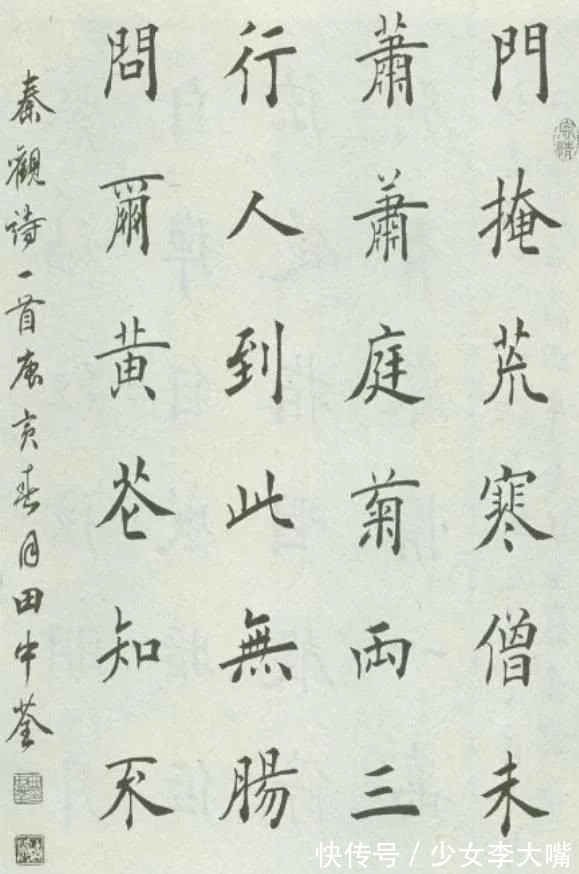 門掩荒寒僧未
蕭蕭庭菊兩三
行人到此無腸
問爾黃花知不
秦觀詩一首庚寅春月田中荃
快传号 / 少女李大嘴